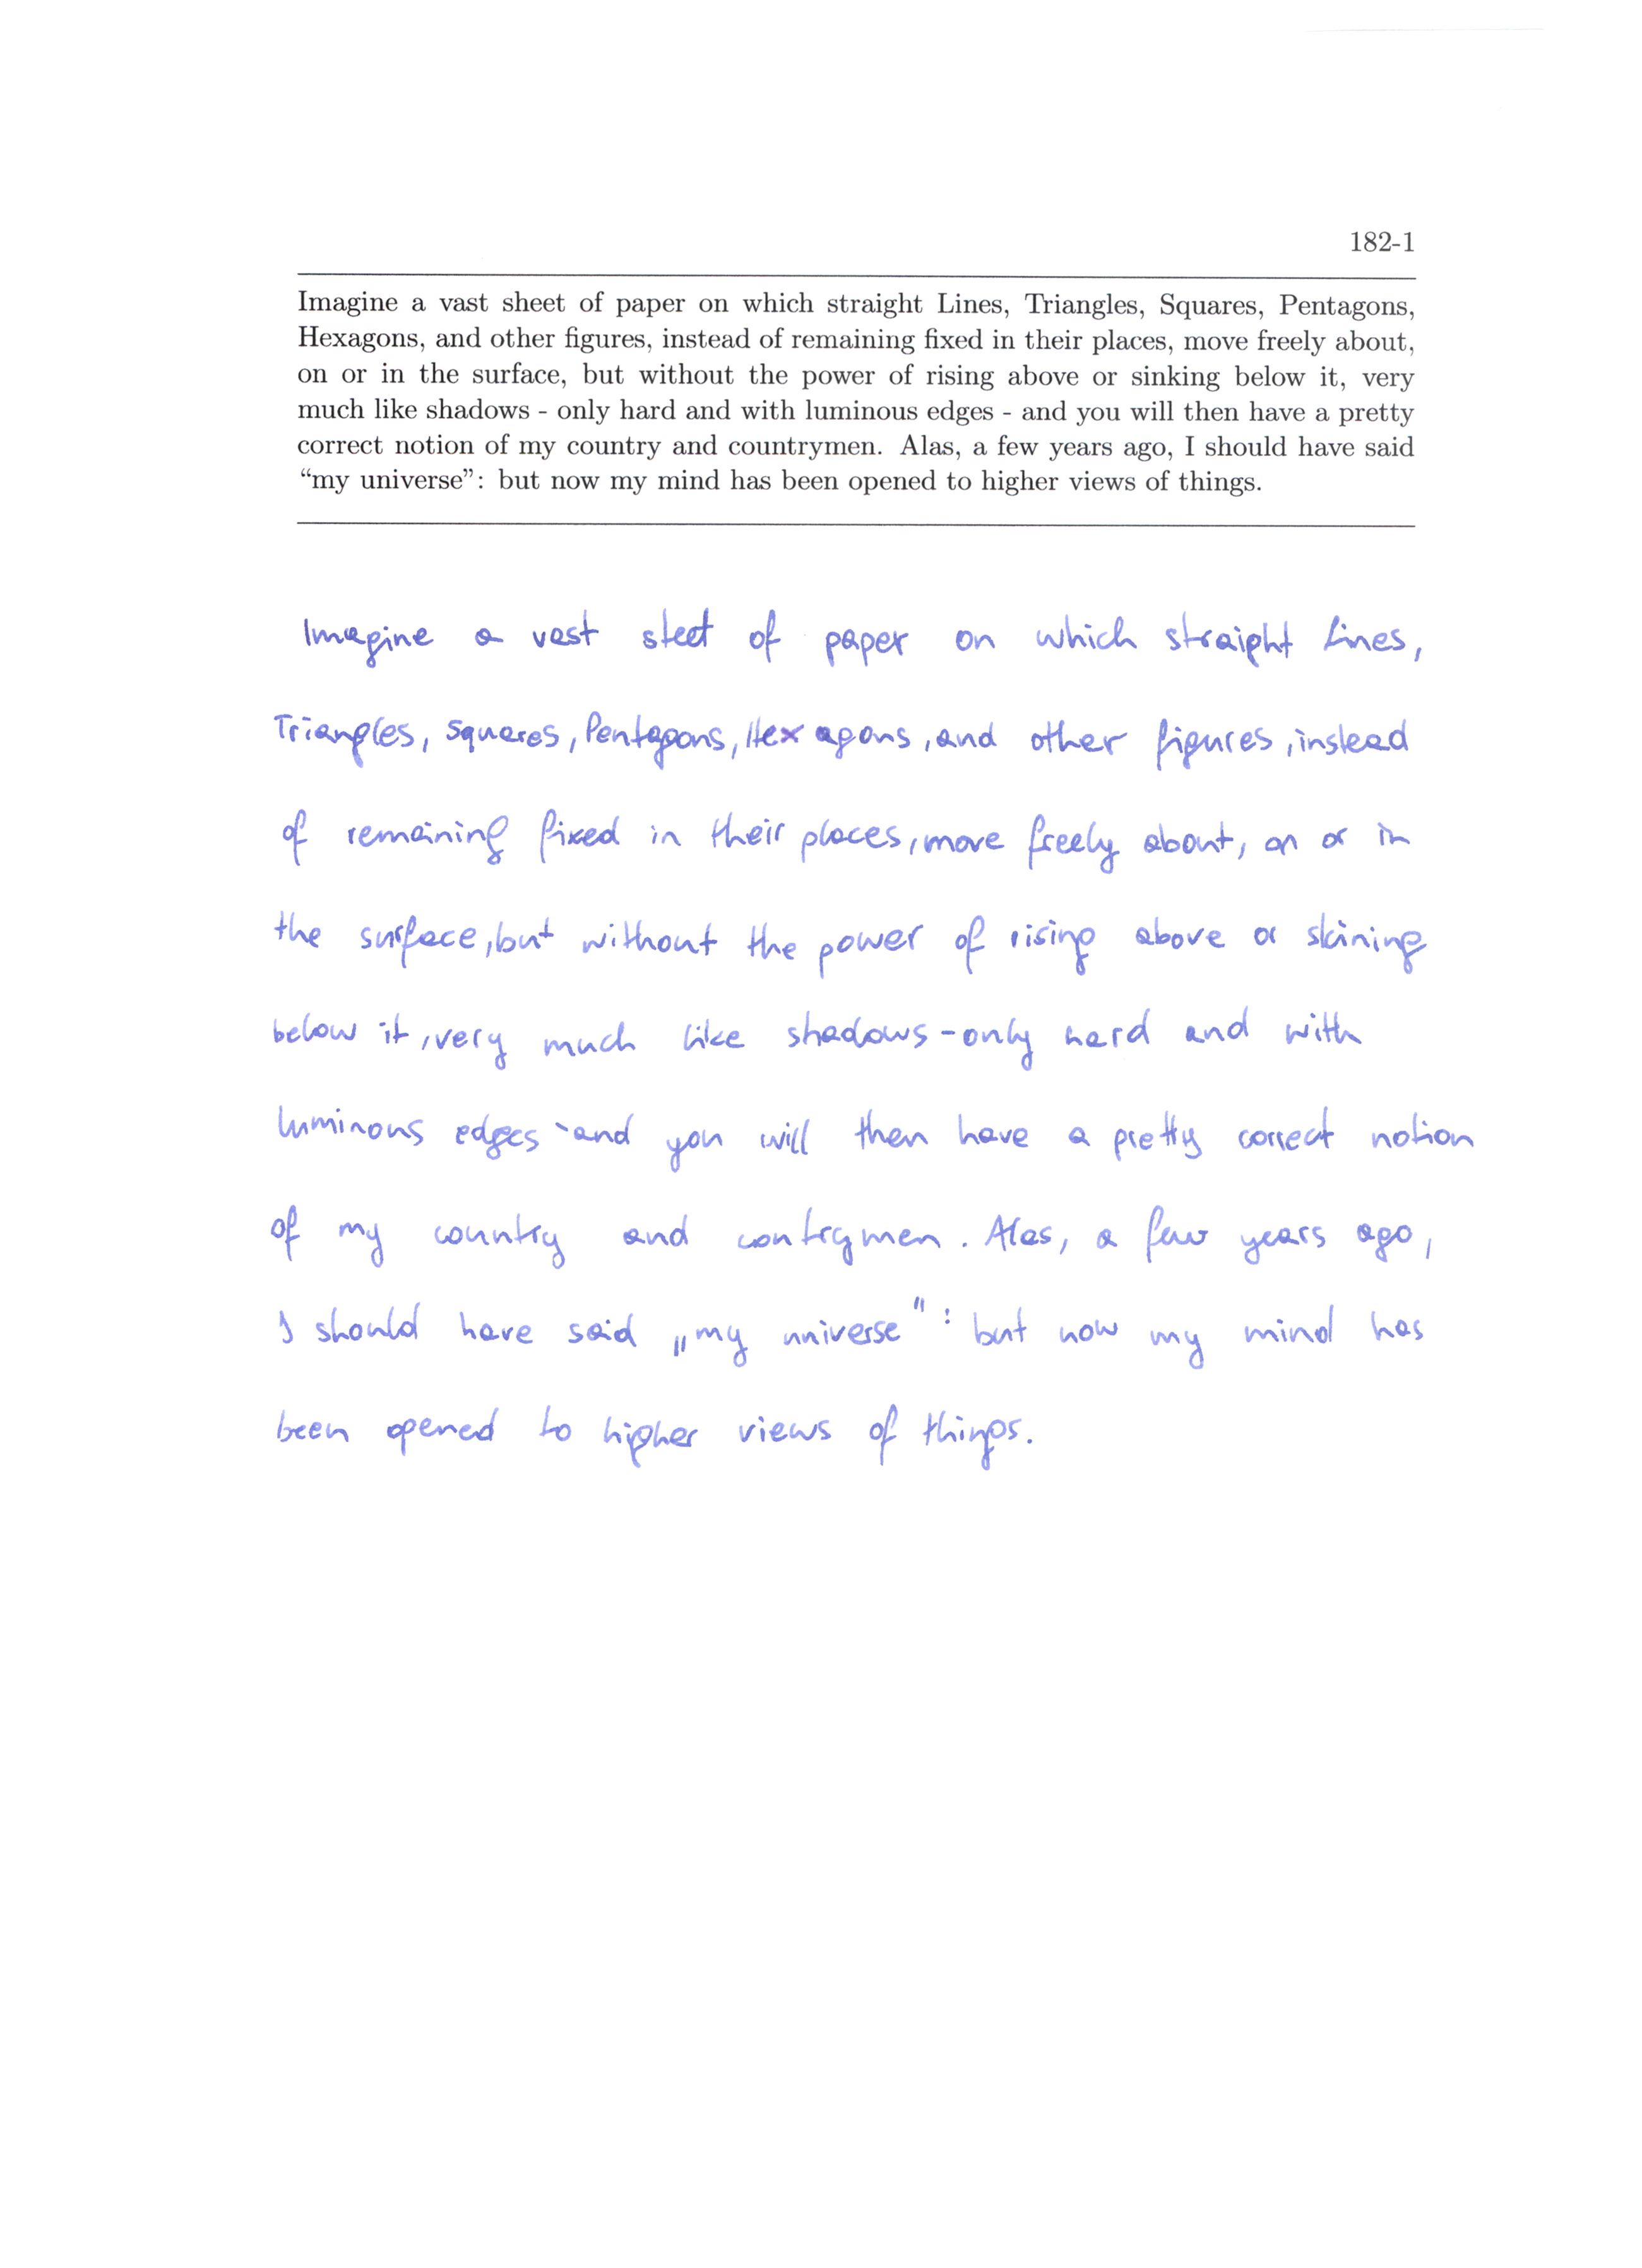 182-1
Imagine a vast sheet of paper on which straight Lines, Triangles, Squares, Pentagons,
Hexagons, and other figures, instead of remaining fixed in their places, move freely about,
on or in the surface, but without the power of rising above or sinking below it, very
much like shadows - only hard and with luminous edges - and you will then have a pretty
correct notion of my country and countrymen. Alas, a few years ago, I should have said
“my universe”: but now my mind has been opened to higher views of things.
Imagine a vast steet of paper on which straight Lines,
Triangles, Squares, Pentagons, Hexagons, and other figures, instead
of remaining fixed in their places, move freely about, on or in
the surface, but without the power of rising above or skining
below it, very much like shadows - only hard and with
luminous edges - and you will then have a pretty correct notion
of my country and contrymen. Alas, a few years ago,
I should have said „my universe": but now my mind has
been opened to higher views of things.